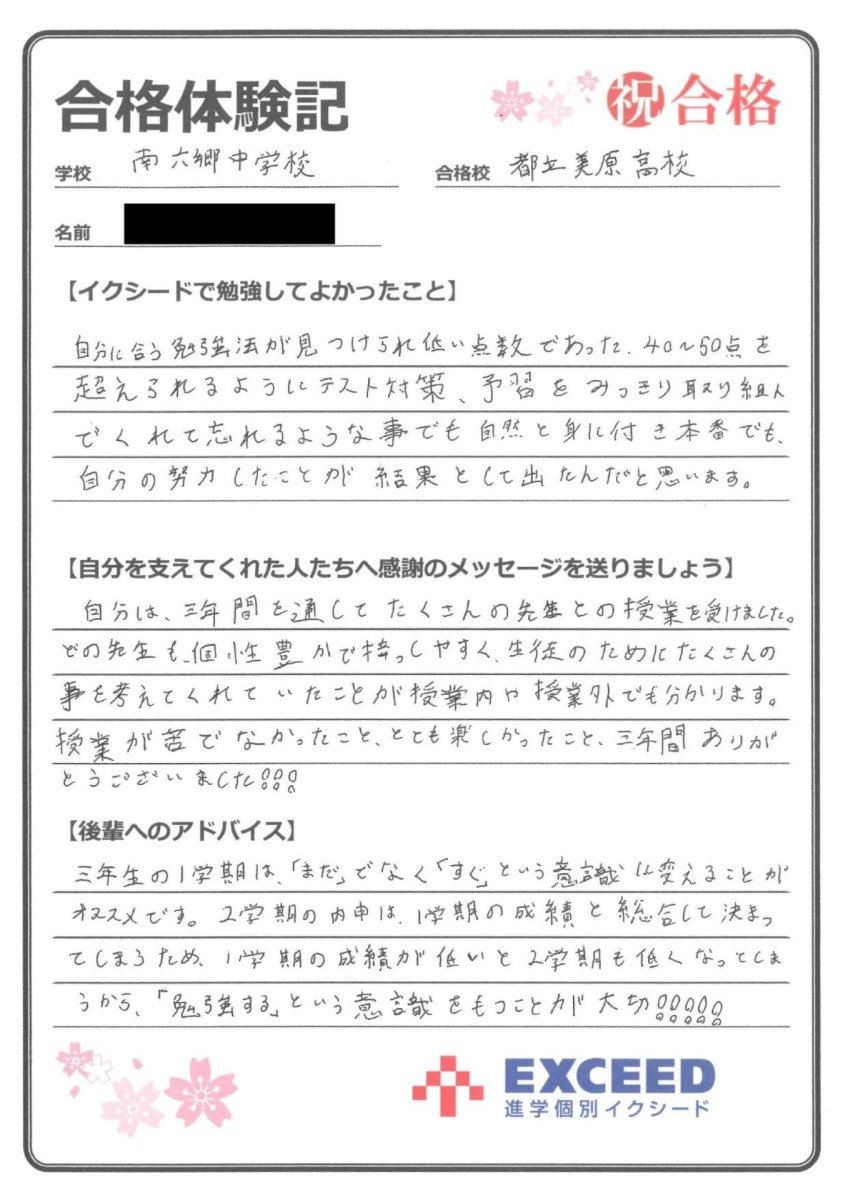 合格体験記
祝 合格
学校 南六郷中学校
合格校 都立美原高校
名前
【イクシードで勉強してよかったこと】
自分に合う勉強法が見つけられ低い点数であった、40～50点を
超えられるようにテスト対策、予習をみっきり取り組ん
でくれて忘れるような事でも自然と身に付き本番でも、
自分の努力したことが結果として出たんだと思います。
【自分を支えてくれた人たちへ感謝のメッセージを送りましょう】
自分は、三年間を通してたくさんの先生との授業を受けました。
どの先生も、個性豊かで接っしやすく、生徒のためにたくさんの
事を考えてくれていたことが授業内や授業外でも分かります。
授業が苦でなかったこと、とても楽しかったこと、三年間ありが
とうございました!!!
【後輩へのアドバイス】
三年生の1学期は、「まだ」でなく「すぐ」という意識に変えることが
オススメです。2学期の内申は、1学期の成績と総合して決まっ
てしまうため、1学期の成績が低いと2学期も低くなってしま
うから、「勉強する」という意識をもつことが大切!!!!!
EXCEED
進学個別イクシード